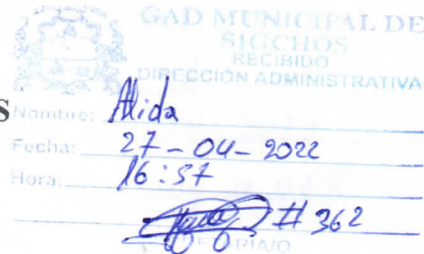 GAD MUNICIPAL DE
SIGCHOS
RECIBIDO
DIRECCIÓN ADMINISTRATIVA
S
Nombre: Alida
Fecha: 27-04-2022
Hora: 16:57
# 362